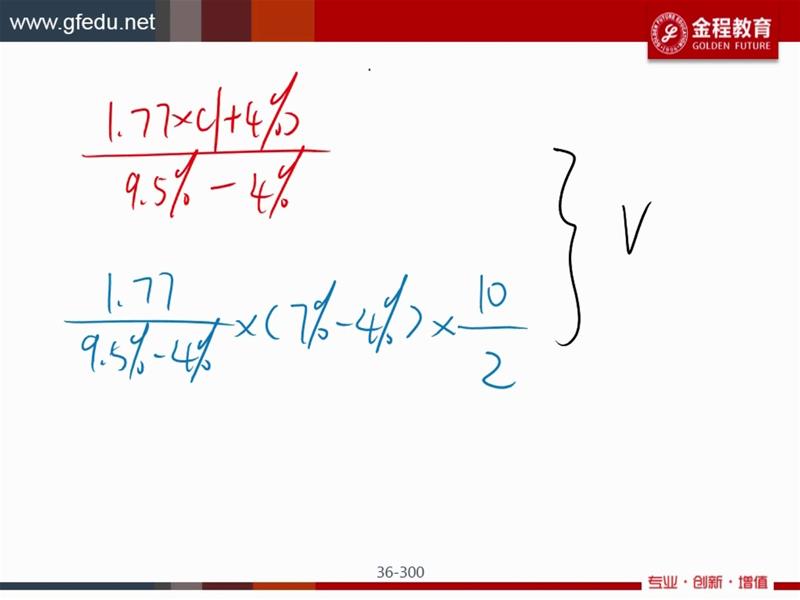 www.gfedu.net
金程教育
GOLDEN FUTURE
1.77×(1+4%)
9.5% - 4%
V
1.77
9.5%-4%
×(7%-4%)×
10
2
36-300
专业·创新·增值